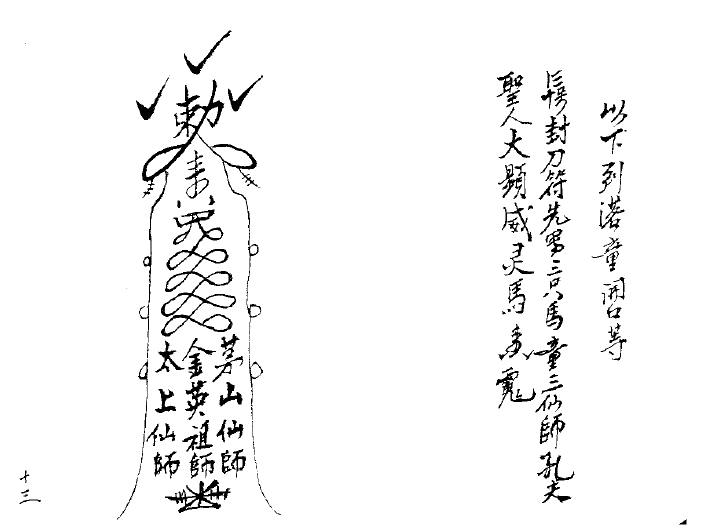 以下列港童開口等
後封刀符先累三只馬童三仙師孔夫
聖人大顯威灵馬
敕
茅山仙師
金英祖師
太上仙師
十三